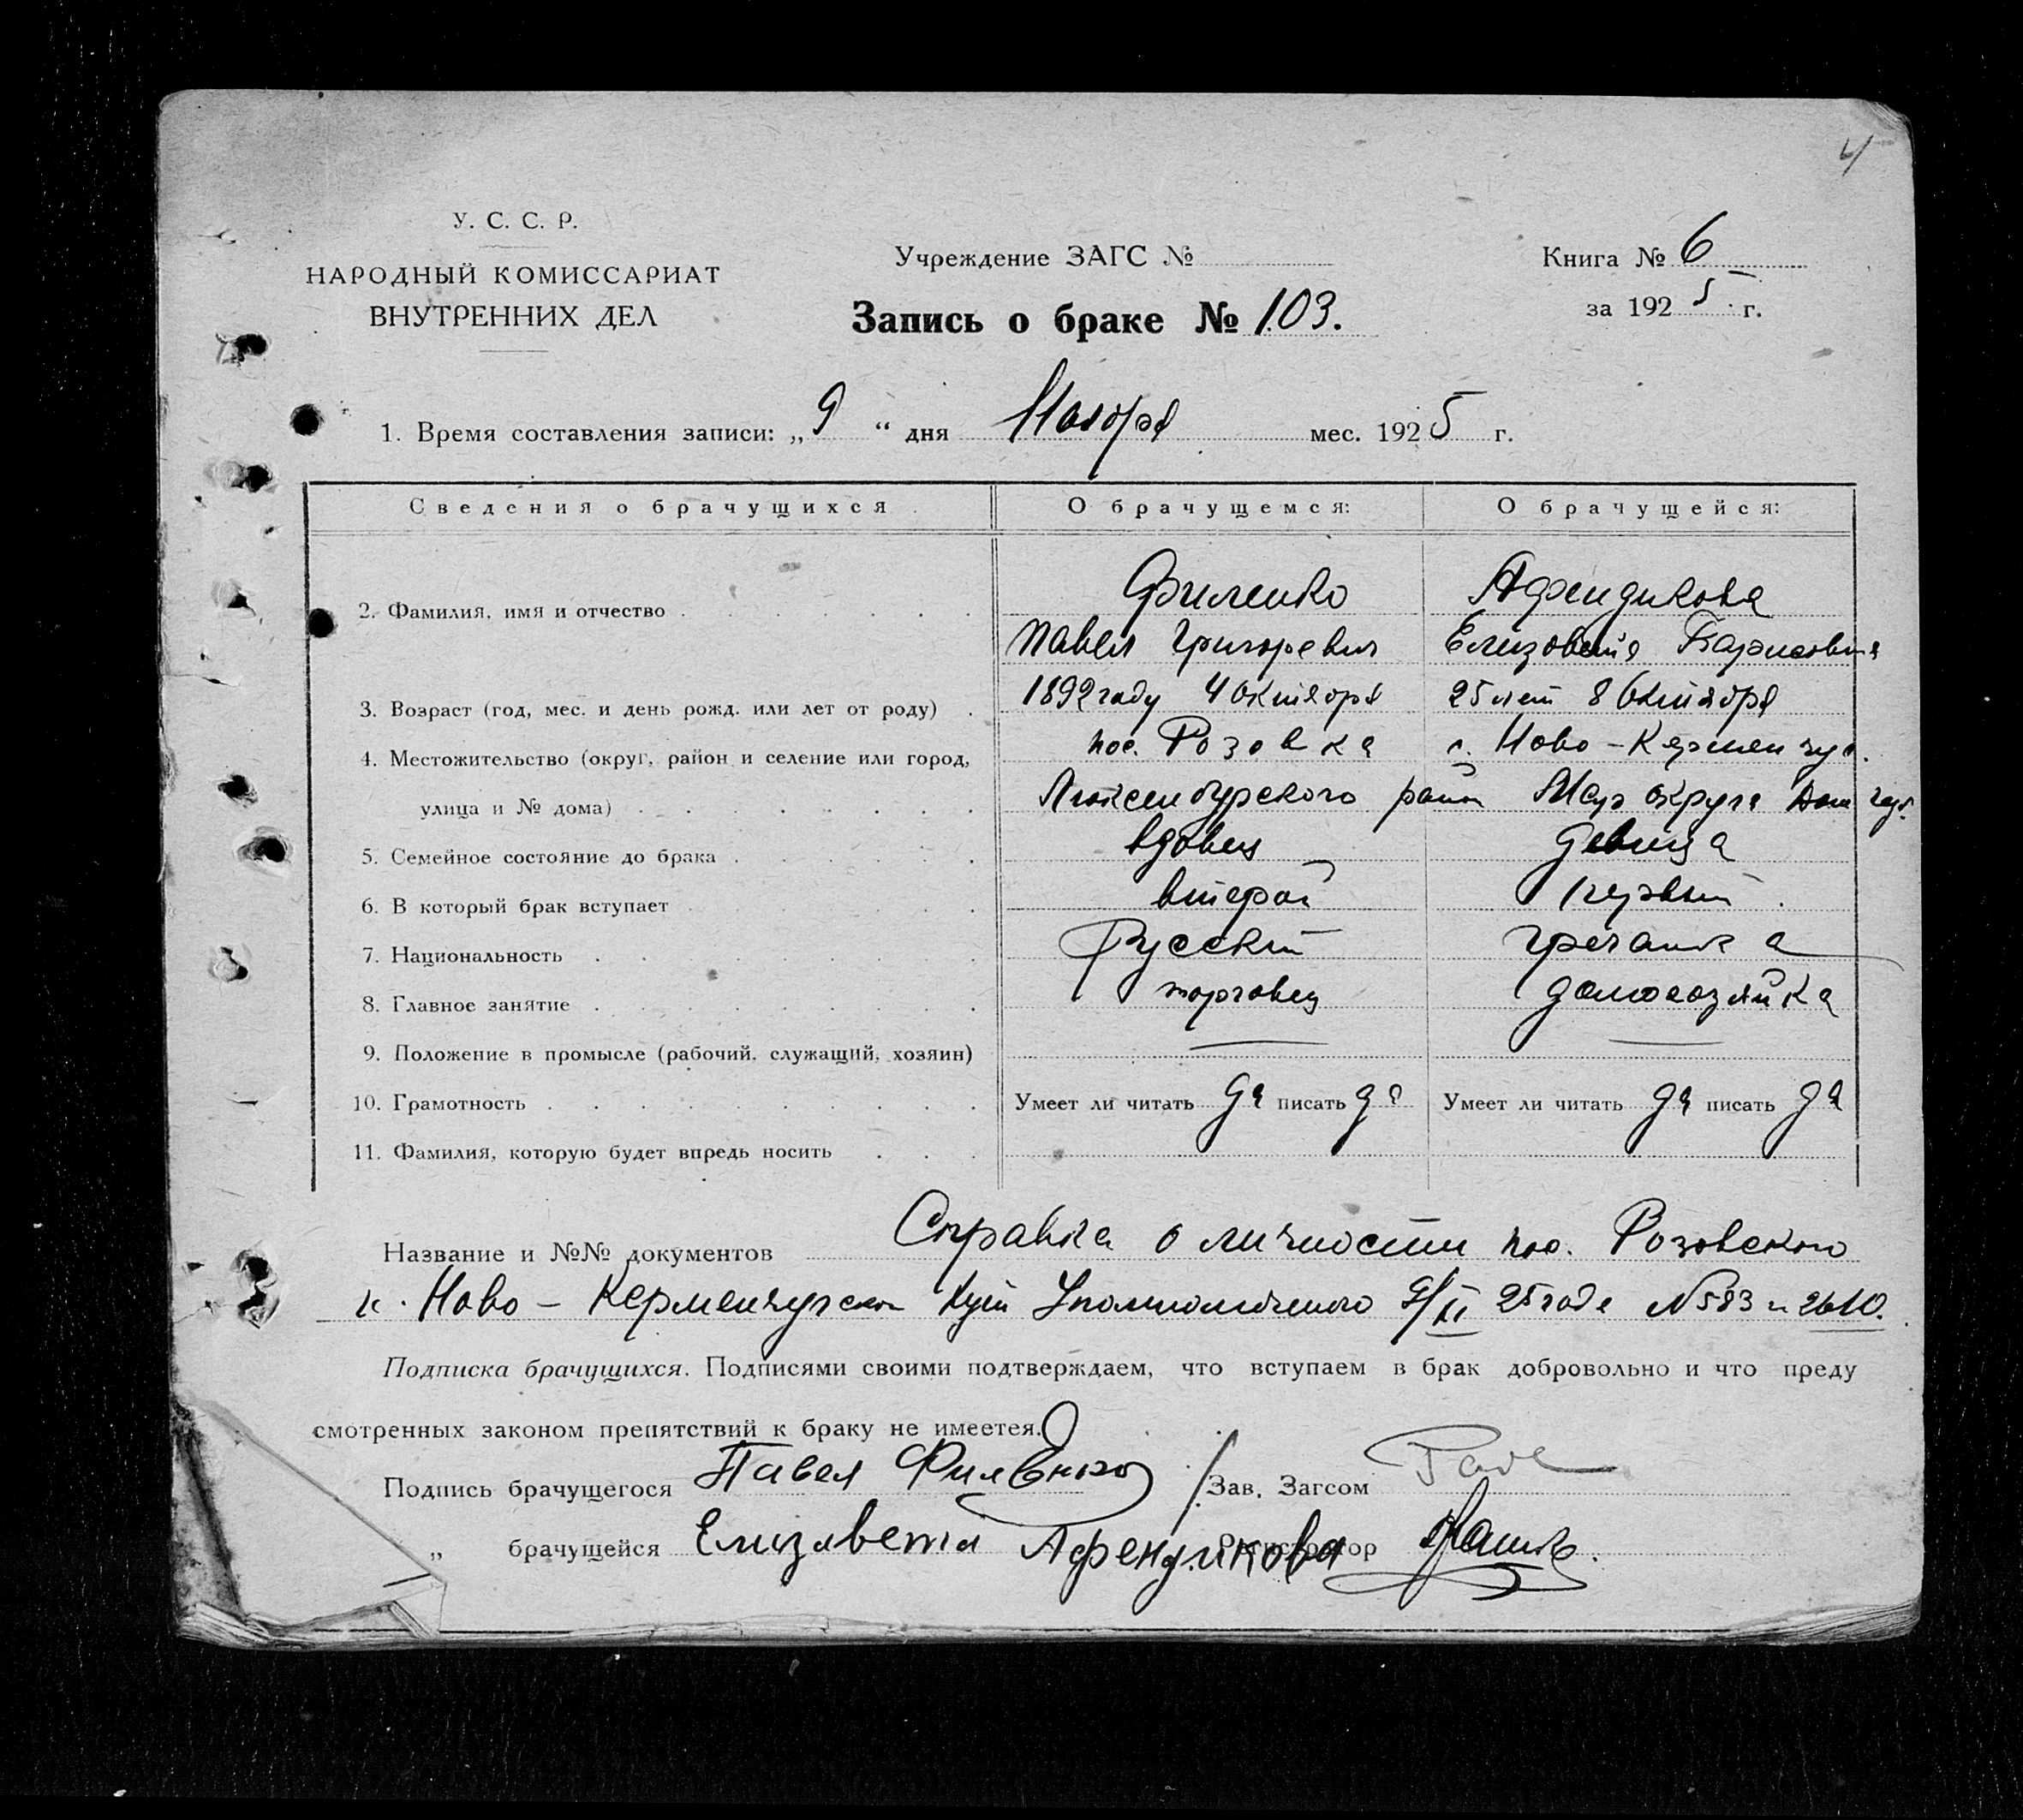 4
У. С. С. Р.
НАРОДНЫЙ КОМИССАРИАТ
ВНУТРЕННИХ ДЕЛ
Учреждение ЗАГС №
Запись о браке № 103.
Книга № 6
за 1925 г.
1. Время составления записи: „9“ дня Ноября мес. 1925 г.
Сведения о брачущихся О брачущемся: О брачущейся:
2. Фамилия, имя и отчество Филенко Афендикова
Павел Григоревич Елизовета
3. Возраст (год, мес. и день рожд. или лет от роду) 1892 году 4 Октября 25 лет 8 Октября
4. Местожительство (округ, район и селение или город, пос. Розовка с. Ново-Керменчуг.
улица и № дома) Люксенбурского район Мар округа Дон губ.
5. Семейное состояние до брака вдовец девица
6. В который брак вступает второй первый
7. Национальность Русский гречанка
8. Главное занятие торговец домохозяйка
9. Положение в промысле (рабочий, служащий, хозяин)
10. Грамотность Умеет ли читать да писать да Умеет ли читать да писать да
11. Фамилия, которую будет впредь носить
Название и №№ документов Справка о личности пос. Розовского
и Ново-Керменчугскои Уполномоченого 9/XI 25 года № 583 и 2610.
Подписка брачущихся. Подписями своими подтверждаем, что вступаем в брак добровольно и что преду
смотренных законом препятствий к браку не имеетея.
Подпись брачущегося Павел Филенко Зав. Загсом
„ брачущейся Елизавета Афендикова Регистратор